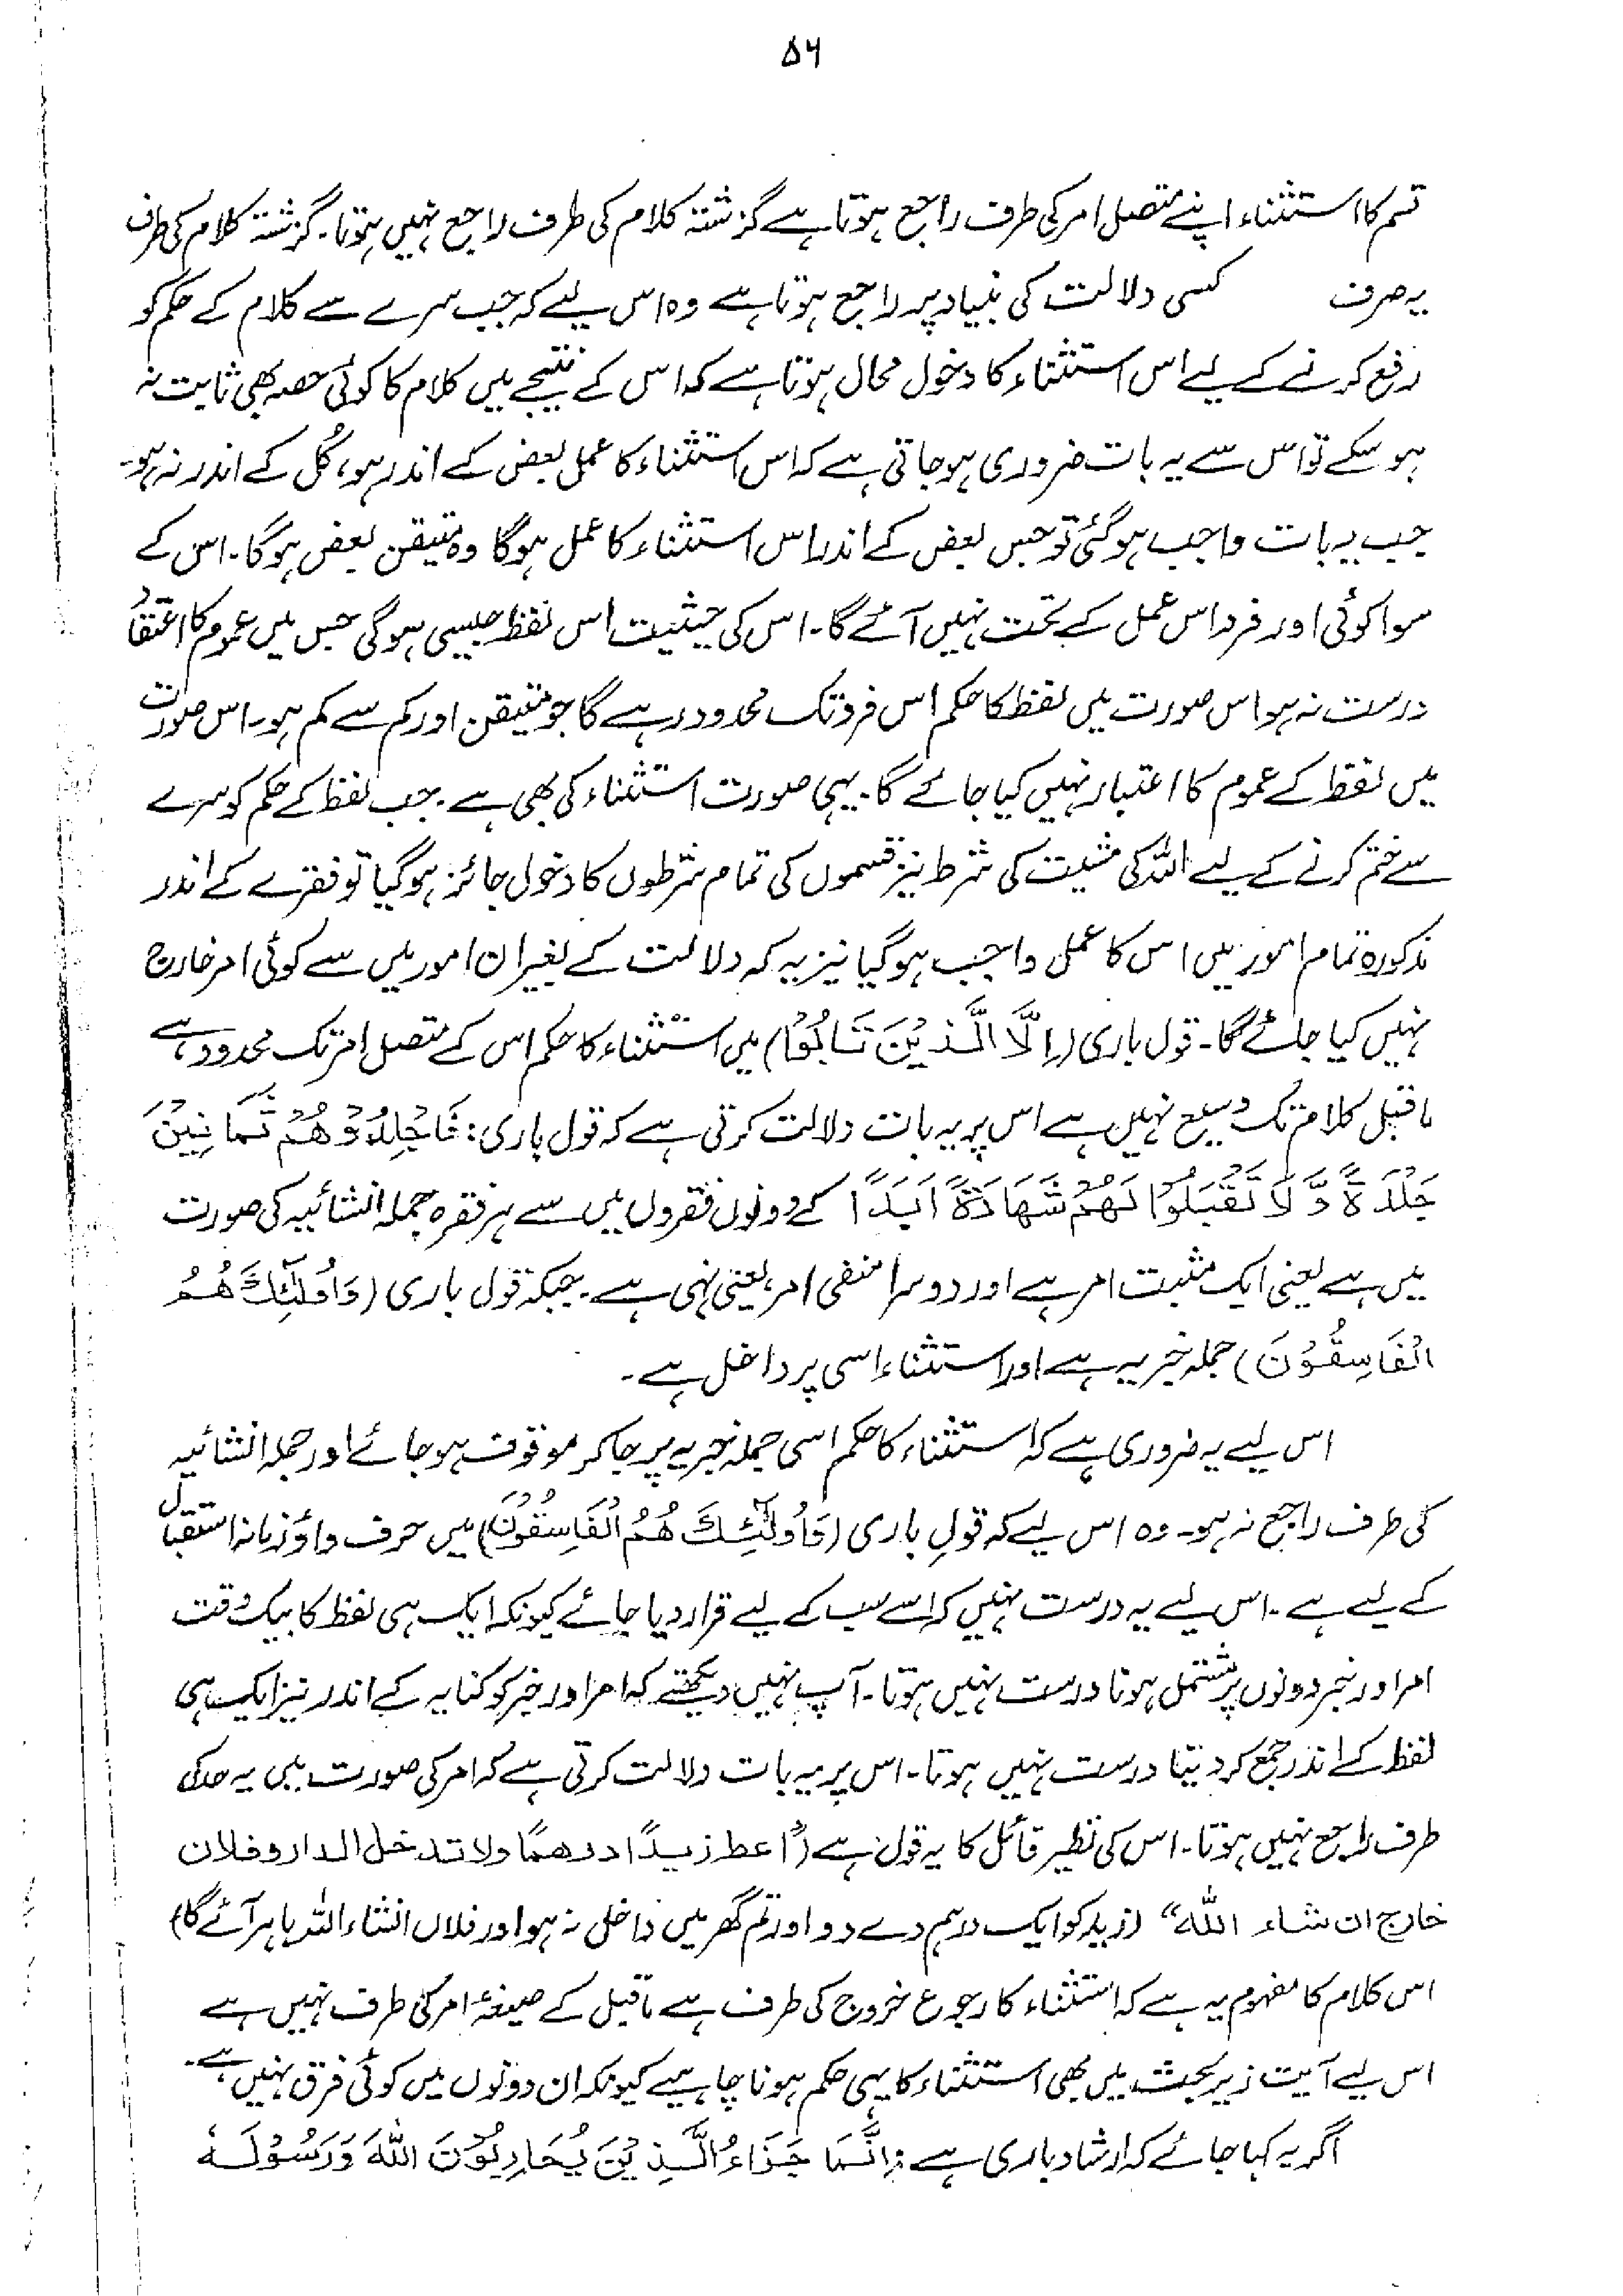 ۵۶
قسم کا استثناء اپنے متصل امر کی طرف راجع ہوتا ہے گزشتہ کلام کی طرف راجع نہیں ہوتا۔ گزشتہ کلام کی طرف
یہ صرف کسی دلالت کی بنیاد پر راجع ہوتا ہے وہ اس لیے کہ جب سرے سے کلام کے حکم کو
رفع کرنے کے لیے اس استثناء کا دخول محال ہوتا ہے کہ اس کے نتیجے میں کلام کا کوئی حصہ بھی ثابت نہ
ہو سکے تو اس سے یہ بات ضروری ہو جاتی ہے کہ اس استثناء کا عمل بعض کے اندر ہو، کُل کے اندر نہ ہو۔
جب یہ بات واجب ہو گئی تو جس بعض کے اندر اس استثناء کا عمل ہو گا وہ متیقن بعض ہو گا۔ اس کے
سوا کوئی اور فرد اس عمل کے تحت نہیں آئے گا۔ اس کی حیثیت اس لفظ جیسی ہو گی جس میں عموم کا اعتقاد
درست نہ ہو اس صورت میں لفظ کا حکم اس فرد تک محدود رہے گا جو متیقن اور کم سے کم ہو۔ اس صورت
میں لفظ کے عموم کا اعتبار نہیں کیا جائے گا۔ یہی صورت استثناء کی بھی ہے۔ جب لفظ کے حکم کو سرے
سے ختم کرنے کے لیے اللہ کی مشیت کی شرط نیز قسموں کی تمام شرطوں کا دخول جائز ہو گیا تو فقرے کے اندر
مذکورہ تمام امور میں اس کا عمل واجب ہو گیا نیز یہ کہ دلالت کے بغیر ان امور میں سے کوئی امر خارج
نہیں کیا جائے گا۔ قول باری (اِلَّا الَّذِیْنَ تَابُوْا) میں استثناء کا حکم اس کے متصل امر تک محدود ہے
ماقبل کلام تک وسیع نہیں ہے اس پر یہ بات دلالت کرتی ہے کہ قول باری: فَاجْلِدُوْهُمْ ثَمَانِیْنَ
جَلْدَةً وَّلَا تَقْبَلُوْا لَهُمْ شَهَادَةً اَبَدًا کے دونوں فقروں میں سے ہر فقرہ جملہ انشائیہ کی صورت
میں ہے یعنی ایک مثبت امر ہے اور دوسرا منفی امر، یعنی نہی ہے۔ جبکہ قول باری (وَاُولٰٓئِكَ هُمُ
الْفَاسِقُوْنَ) جملہ خبریہ ہے اور استثناء اسی پر داخل ہے۔
اس لیے یہ ضروری ہے کہ استثناء کا حکم اسی جملہ خبریہ پر جا کر موقوف ہو جائے اور جملہ انشائیہ
کی طرف راجع نہ ہو۔ وہ اس لیے کہ قولِ باری (وَاُولٰٓئِكَ هُمُ الْفَاسِقُوْنَ) میں حرف واؤ زمانہ استقبال
کے لیے ہے۔ اس لیے یہ درست نہیں کہ اسے سب کے لیے قرار دیا جائے کیونکہ ایک ہی لفظ کا بیک وقت
امر اور خبر دونوں پر مشتمل ہونا درست نہیں ہوتا۔ آپ نہیں دیکھتے کہ امر اور خبر کو کنایہ کے اندر نیز ایک ہی
لفظ کے اندر جمع کر دینا درست نہیں ہوتا۔ اس پر یہ بات دلالت کرتی ہے کہ امر کی صورت میں یہ حد کی
طرف راجع نہیں ہوتا۔ اس کی نظیر قائل کا یہ قول ہے (“اعط زیدًا درهمًا ولا تدخل الدار وفلان
خارج ان شاء الله” (زید کو ایک درہم دے دو اور تم گھر میں داخل نہ ہو اور فلاں انشاء اللہ باہر آئے گا)
اس کلام کا مفہوم یہ ہے کہ استثناء کا رجوع خروج کی طرف ہے ماقبل کے صیغۂ امر کی طرف نہیں ہے
اس لیے آیت زیر بحث میں بھی استثناء کا یہی حکم ہونا چاہیے کیونکہ ان دونوں میں کوئی فرق نہیں ہے۔
اگر یہ کہا جائے کہ ارشاد باری ہے: اِنَّمَا جَزَاءُ الَّذِیْنَ یُحَارِبُوْنَ اللّٰهَ وَرَسُوْلَهٗ